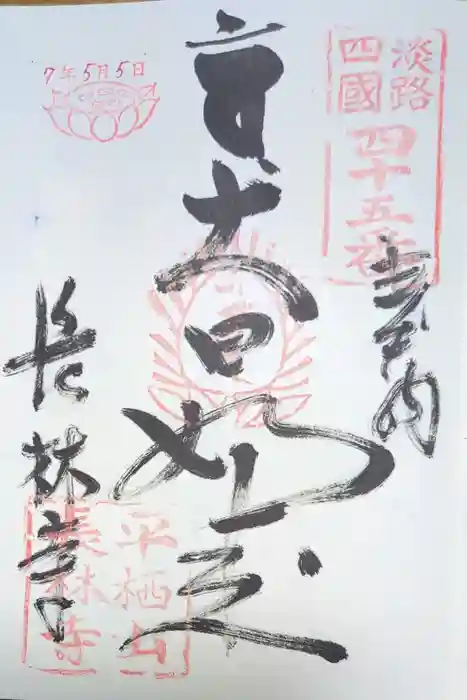 淡路
四國
四十五番
奉納
大日如来
7年5月5日
長林寺
平栖山
長林寺